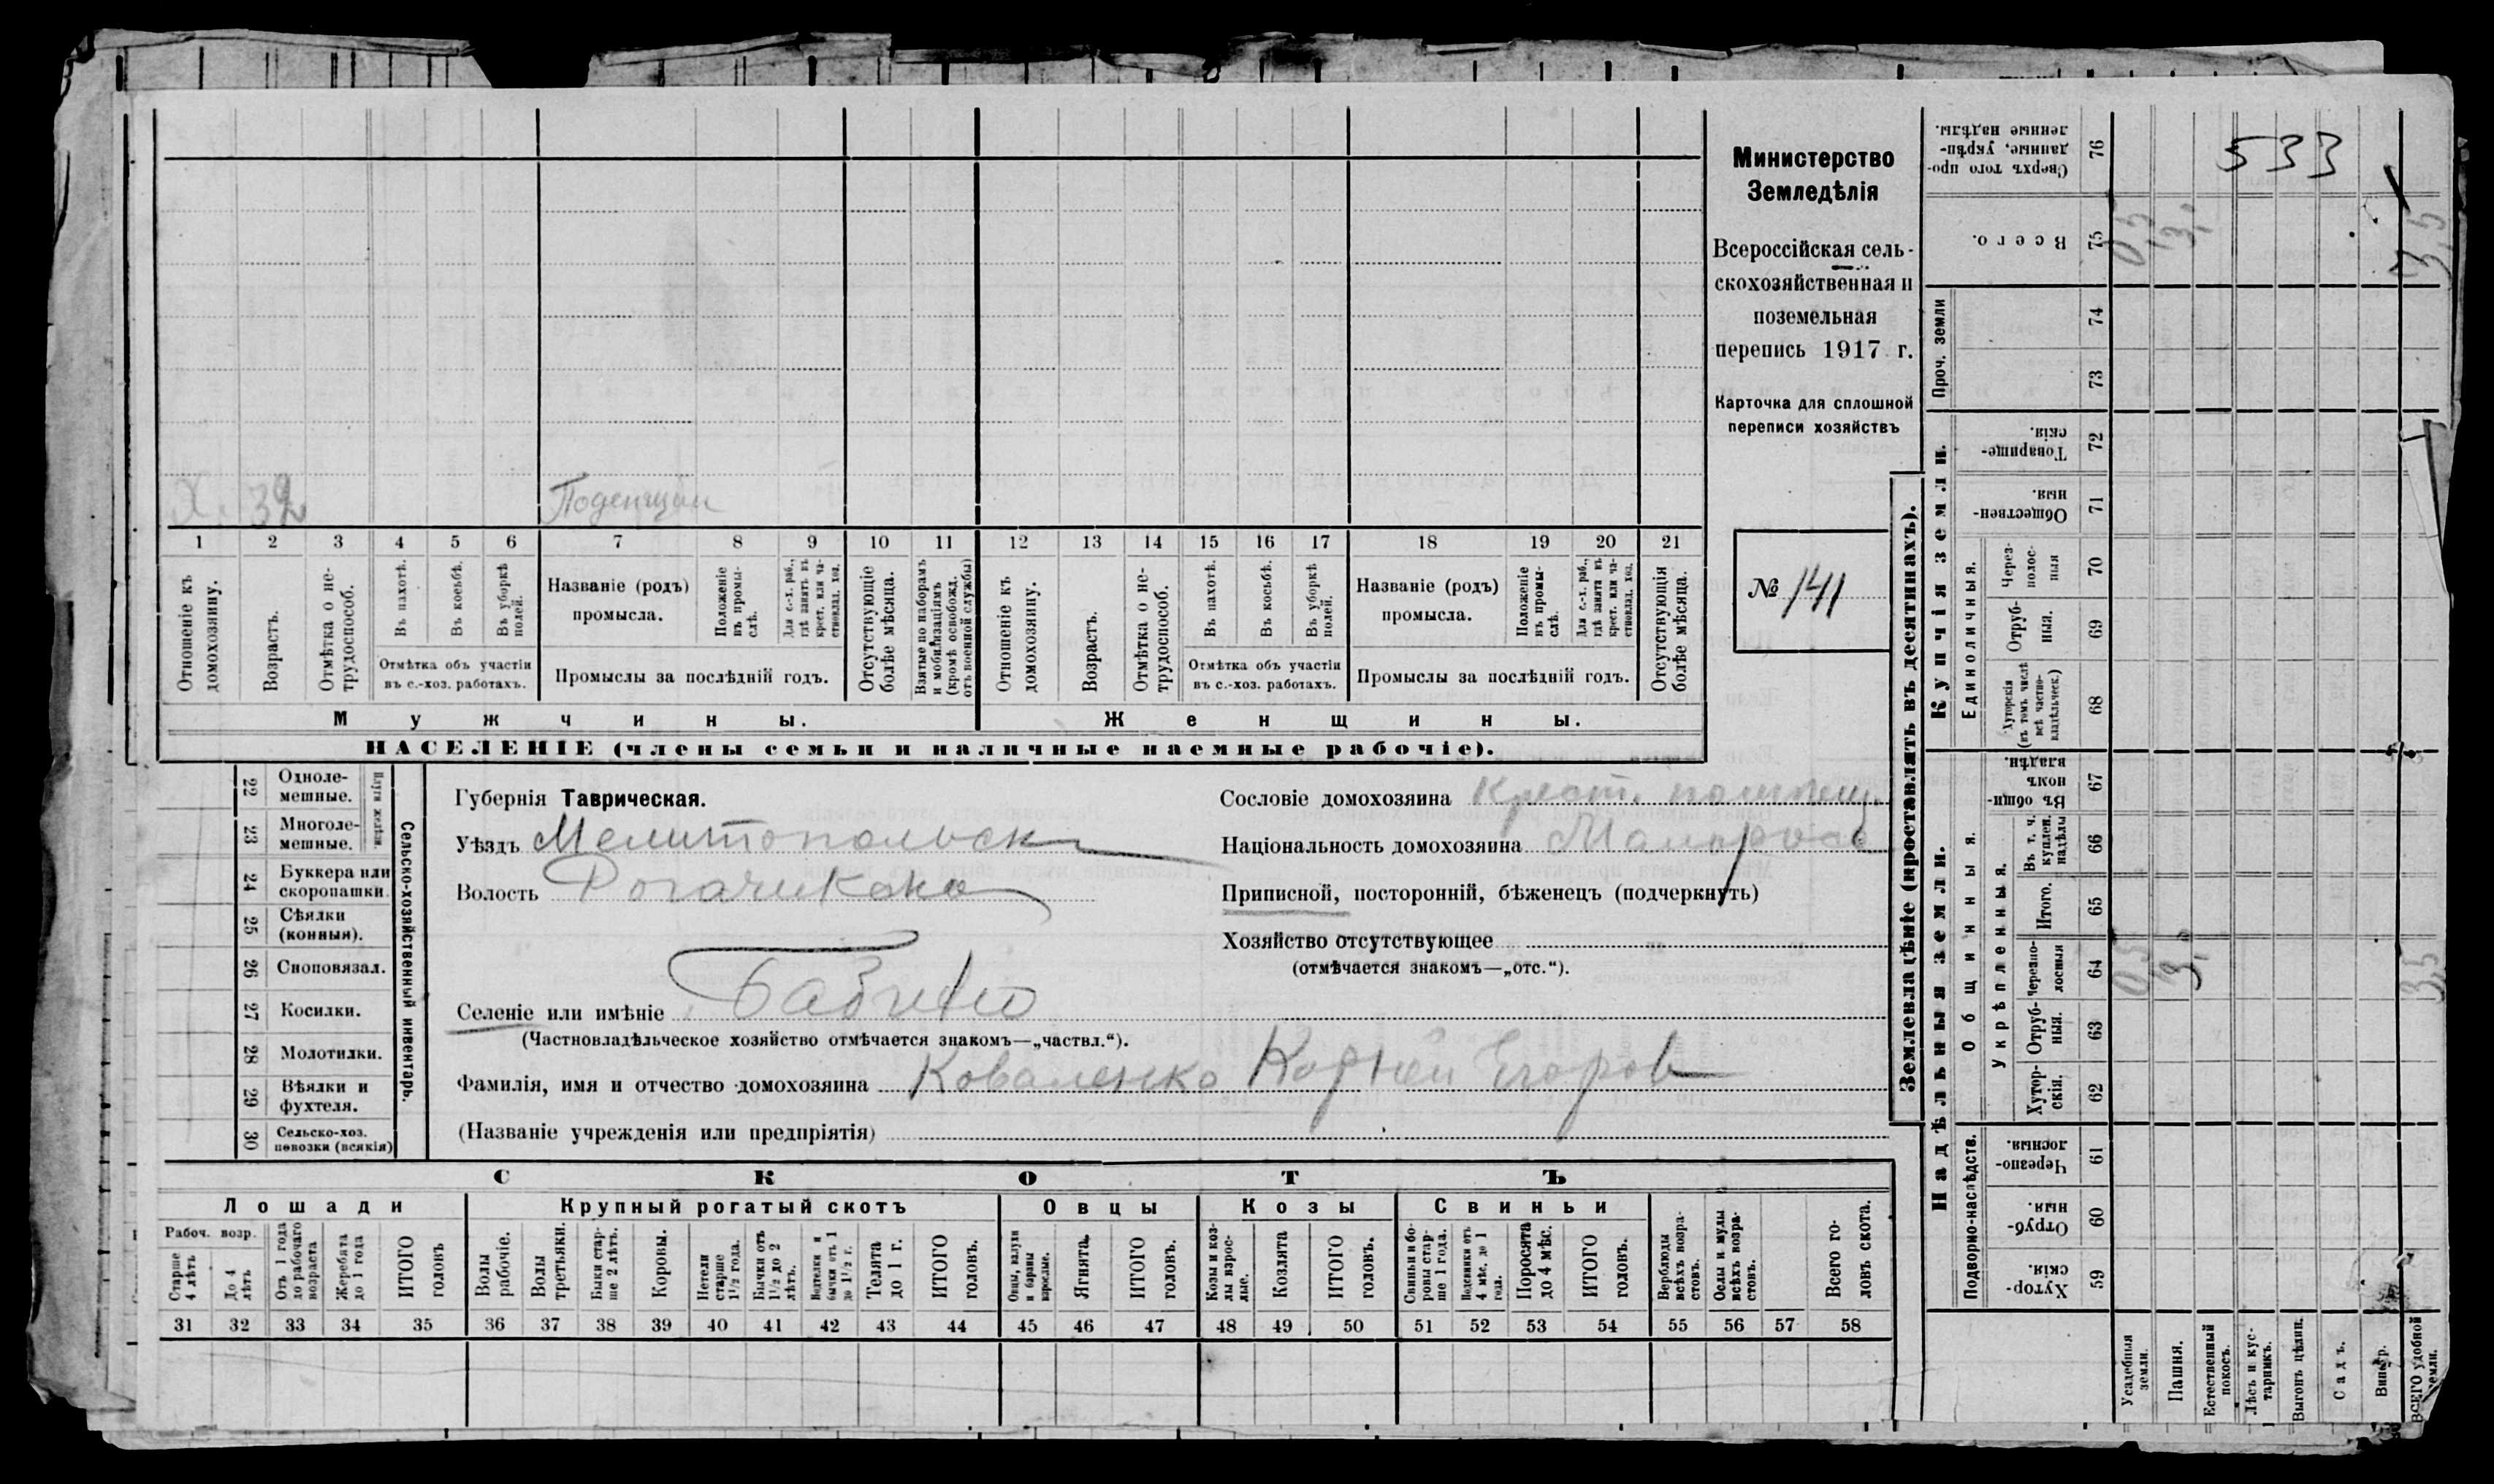 533
Х. 32 Поденщик
1 2 3 4 5 6 7 8 9 10 11 12 13 14 15 16 17 18 19 20 21
Отношеніе къ домохозяину.
Возрастъ.
Отмѣтка о не-
трудоспособ.
Въ пахотѣ.
Въ косьбѣ.
Въ уборкѣ полей.
Отмѣтка объ участіи
въ с.-хоз. работахъ.
Названіе (родъ)
промысла.
Положеніе
въ промы-
слѣ.
Для с.-х. раб.,
гдѣ занятъ въ
крест. или ча-
стновлад. хоз.
Промыслы за послѣдній годъ.
Отсутствующіе
болѣе мѣсяца.
Взятые по наборамъ
и мобилизаціямъ
(кромѣ освобожд.
отъ военной службы)
Отношеніе къ
домохозяину.
Возрастъ.
Отмѣтка о не-
трудоспособ.
Въ пахотѣ.
Въ косьбѣ.
Въ уборкѣ
полей.
Отмѣтка объ участіи
въ с.-хоз. работахъ.
Названіе (родъ)
промысла.
Положеніе
въ промы-
слѣ.
Для с.-х. раб.,
гдѣ занята въ
крест. или ча-
стновлад. хоз.
Промыслы за послѣдній годъ.
Отсутствующія
болѣе мѣсяца.
Мужчины.
Женщины.
НАСЕЛЕНІЕ (члены семьи и наличные наемные рабочіе).
Министерство
Земледѣлія
Всероссійская сель-
скохозяйственная и
поземельная
перепись 1917 г.
Карточка для сплошной
переписи хозяйствъ
№ 141
22 Одноле-
мешные.
23 Многоле-
мешные.
Плуги желѣзн.
24 Буккера или
скоропашки.
25 Сѣялки
(конныя).
26 Сноповязал.
27 Косилки.
28 Молотилки.
29 Вѣялки и
фухтеля.
30 Сельско-хоз.
повозки (всякія)
Сельско-хозяйственный инвентарь.
Губернія Таврическая.
Уѣздъ Мелитопольск
Волость Рогачикская
Селеніе или имѣніе Бабино
(Частновладѣльческое хозяйство отмѣчается знакомъ—„частвл.“).
Фамилія, имя и отчество домохозяина Коваленко Корней Егоров
(Названіе учрежденія или предпріятія)
Сословіе домохозяина Крест.
Національность домохозяина Малорос
Приписной, посторонній, бѣженецъ (подчеркнуть)
Хозяйство отсутствующее
(отмѣчается знакомъ—„отс.“).
СКОТЪ
Лошади
Крупный рогатый скотъ
Овцы
Козы
Свиньи
Рабоч. возр.
Старше
4 лѣтъ
До 4
лѣтъ
Отъ 1 года
до рабочаго
возраста
Жеребята
до 1 года
ИТОГО
головъ
Волы
рабочіе.
Волы
третьяки.
Быки стар-
ше 2 лѣтъ.
Коровы.
Нетели
старше
1½ года.
Бычки отъ
1½ до 2
лѣтъ.
Водтелки и
бычки отъ 1
до 1½ г.
Телята
до 1 г.
ИТОГО
головъ.
Овцы, валухи
и бараны
взрослые.
Ягнята.
ИТОГО
головъ.
Козы и коз-
лы взрос-
лые.
Козлята
ИТОГО
головъ.
Свиньи и бо-
ровы стар-
ше 1 года.
Подсвинки отъ
4 мѣс. до 1
года.
Поросята
до 4 мѣс.
ИТОГО
головъ.
Верблюды
всѣхъ возра-
стовъ.
Ослы и мулы
всѣхъ возра-
стовъ.
Всего го-
ловъ скота.
31 32 33 34 35 36 37 38 39 40 41 42 43 44 45 46 47 48 49 50 51 52 53 54 55 56 57 58
Землевладѣніе (проставлять въ десятинахъ).
Сверхъ того про-
данные, укрѣп-
ленные надѣлы.
76
Всего.
75 0,5 3, 3,5
Проч. земли
74
73
Купчія земли.
Товарище-
скія.
72
Обществен-
ныя.
71
Единоличныя.
Через-
полос-
ныя
70
Отруб-
ныя.
69
Хуторскія
(въ томъ числѣ
всѣ частно-
владѣльческ.)
68
Надѣльныя земли.
Общинныя.
Въ общин-
номъ
владѣн.
67
Укрѣпленныя.
Въ т. ч.
куплен.
надѣлы
66
Итого.
65
Черезпо-
лосныя
64 0,5 3, 3,5
Отруб-
ныя.
63
Хутор-
скія.
62
Подворно-наслѣдств.
Черезпо-
лосныя.
61
Отруб-
ныя.
60
Хутор-
скія.
59
Усадебныя
земли.
Пашня.
Естественный
покосъ.
Лѣсъ и кус-
тарникъ.
Выгонъ цѣлин.
Садъ.
Виногр.
ВСЕГО удобной
земли.